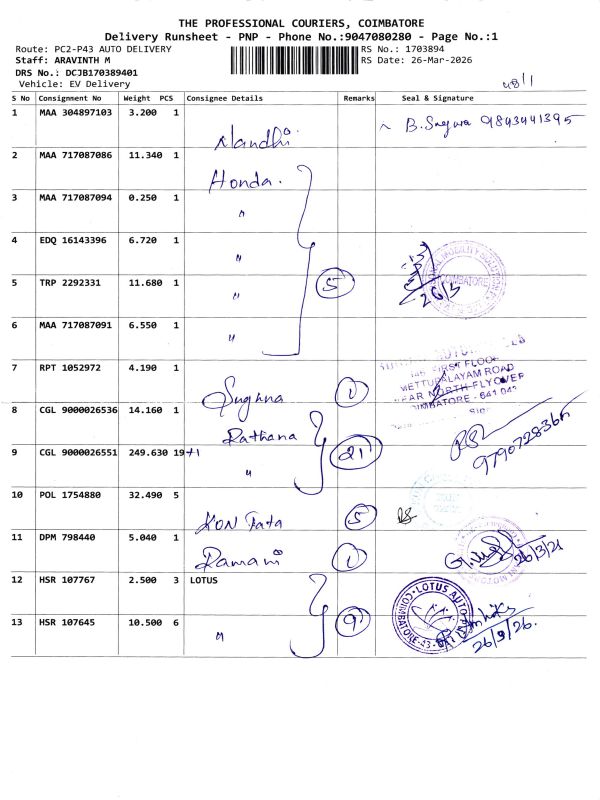 THE PROFESSIONAL COURIERS, COIMBATORE
Delivery Runsheet - PNP - Phone No.:9047080280 - Page No.:1
Route: PC2-P43 AUTO DELIVERY
RS No.: 1703894
Staff: ARAVINTH M
RS Date: 26-Mar-2026
DRS No.: DCJB170389401
Vehicle: EV Delivery
48/1
S No Consignment No Weight PCS Consignee Details Remarks Seal & Signature
1 MAA 304897103 3.200 1 Nandhi 9843441395
2 MAA 717087086 11.340 1 Honda.
3 MAA 717087094 0.250 1 "
4 EDQ 16143396 6.720 1 "
5 TRP 2292331 11.680 1 " 5 26/3
COIMBATORE
6 MAA 717087091 6.550 1 "
7 RPT 1052972 4.190 1 Sughna 1
FIRST FLOOR
METTUPALAYAM ROAD
NEAR NORTH-FLYOVER
COIMBATORE - 641 043
8 CGL 9000026536 14.160 1 Rathana
9 CGL 9000026551 249.630 19+1 " 21
10 POL 1754880 32.490 5 KON Tata 5
11 DPM 798440 5.040 1 Ramani 1
12 HSR 107767 2.500 3 LOTUS
LOTUS AUTO
COIMBATORE-43
13 HSR 107645 10.500 6 " 9